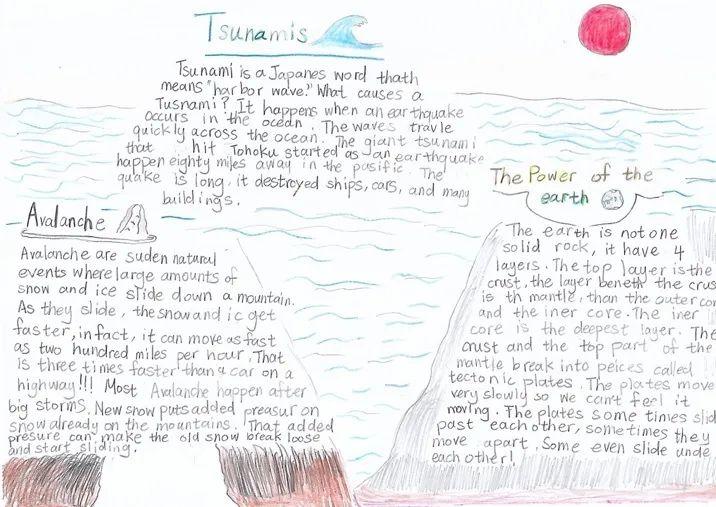 Tsunamis
Tsunami is a Japanes word thath
means "harbor wave." What causes a
Tusnami? It happens when an earthquake
occurs in the ocean. The waves travle
quickly across the ocean. The giant tsunami
that hit Tohoku started as an earthquake
happen eighty miles away in the pasific. The
quake is long, it destroyed ships, cars, and many
buildings.
Avalanche
Avalanche are suden natural
events where large amounts of
snow and ice slide down a mountain.
As they slide, the snow and ic get
faster, in fact, it can move as fast
as two hundred miles per hour. That
is three times faster than a car on a
highway!!! Most Avalanche happen after
big storms. New snow puts added preasur on
snow already on the mountains. That added
presure can make the old snow break loose
and start sliding.
The Power of the
earth
The earth is not one
solid rock, it have 4
layers. The top layer is the
crust, the layer beneth the crus
is th mantle, than the outer cor
and the inner core. The iner
core is the deepest layer. The
crust and the top part of the
mantle break into peices called
tectonic plates. The plates move
very slowly so we can't feel it
moving. The plates some times slid
past each other, sometimes they
move apart. Some even slide unde
each other!